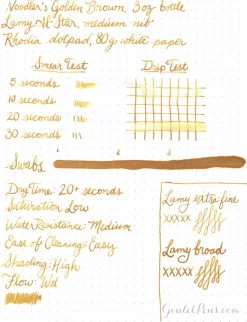 Noodler's Golden Brown, 3oz bottle
Lamy Al-Star, medium nib
Rhodia dotpad, 80g white paper
Smear Test
Drip Test
5 seconds
10 seconds
20 seconds
30 seconds
1 2 3
Swabs
Dry Time: 20+ seconds
Saturation Low
Water Resistance: Medium
Ease of Cleaning: Easy
Shading: High
Flow: Wet
Lamy extra fine
xxxxx
Lamy broad
xxxxx
GouletPens.com